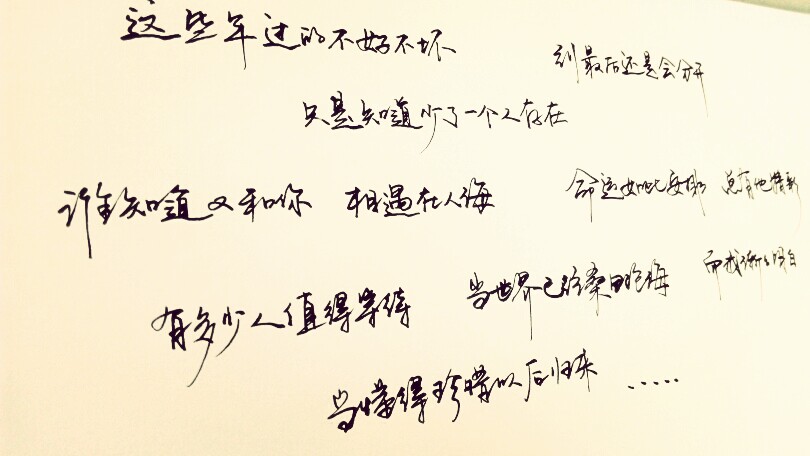 这些年过的不好不坏
到最后还是会分开
只是知道少了一个人存在
谁知道又和你 相遇在人海 命运如此安排 总有他
有多少人值得等待 当世界已经桑田沧海 而我渐渐明白
当懂得珍惜以后归来 ......